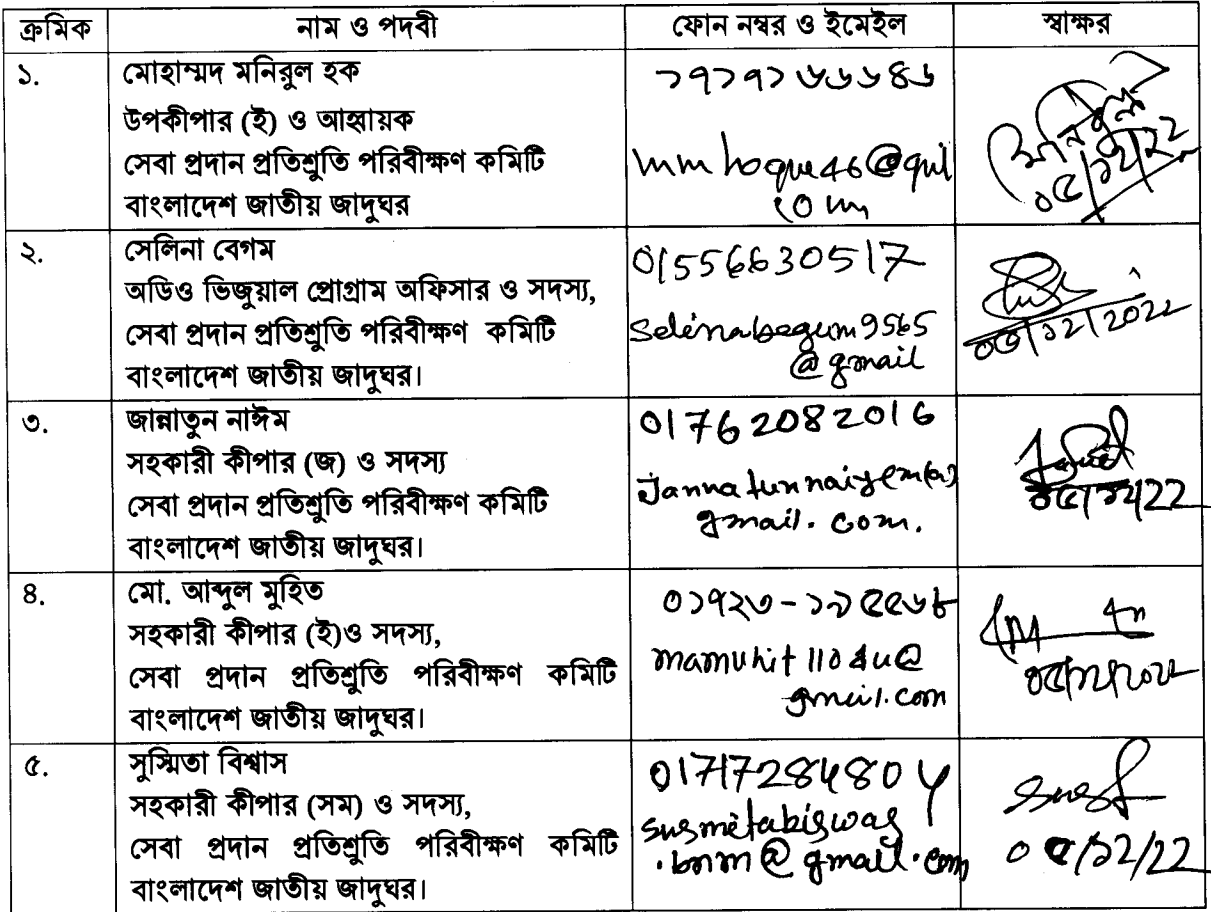 ক্রমিক নাম ও পদবী ফোন নম্বর ও ইমেইল স্বাক্ষর
১. মোহাম্মদ মনিরুল হক
উপকীপার (ই) ও আহ্বায়ক
সেবা প্রদান প্রতিশ্রুতি পরিবীক্ষণ কমিটি
বাংলাদেশ জাতীয় জাদুঘর
১৭১৭১৬৬৬৪৬
০৫/১২/২২
২. সেলিনা বেগম
অডিও ভিজুয়াল প্রোগ্রাম অফিসার ও সদস্য,
সেবা প্রদান প্রতিশ্রুতি পরিবীক্ষণ কমিটি
বাংলাদেশ জাতীয় জাদুঘর।
01556630517
selinabegum9565
@gmail
৩. জান্নাতুন নাঈম
সহকারী কীপার (জ) ও সদস্য
সেবা প্রদান প্রতিশ্রুতি পরিবীক্ষণ কমিটি
বাংলাদেশ জাতীয় জাদুঘর।
01762082016
Jannatunnaiyem@
gmail.com.
৪. মো. আব্দুল মুহিত
সহকারী কীপার (ই)ও সদস্য,
সেবা প্রদান প্রতিশ্রুতি পরিবীক্ষণ কমিটি
বাংলাদেশ জাতীয় জাদুঘর।
০১৭২৩-১৯৫৫৬৮
gmail.com
৫. সুস্মিতা বিশ্বাস
সহকারী কীপার (সম) ও সদস্য,
সেবা প্রদান প্রতিশ্রুতি পরিবীক্ষণ কমিটি
বাংলাদেশ জাতীয় জাদুঘর।
01717284804
susmitabiswas
.bnm@gmail.com
০৫/১২/22